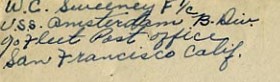 W.C. Sweeney F 1/c
U.S.S. Amsterdam B. Div.
c/o Fleet Post office
San Francisco Calif.